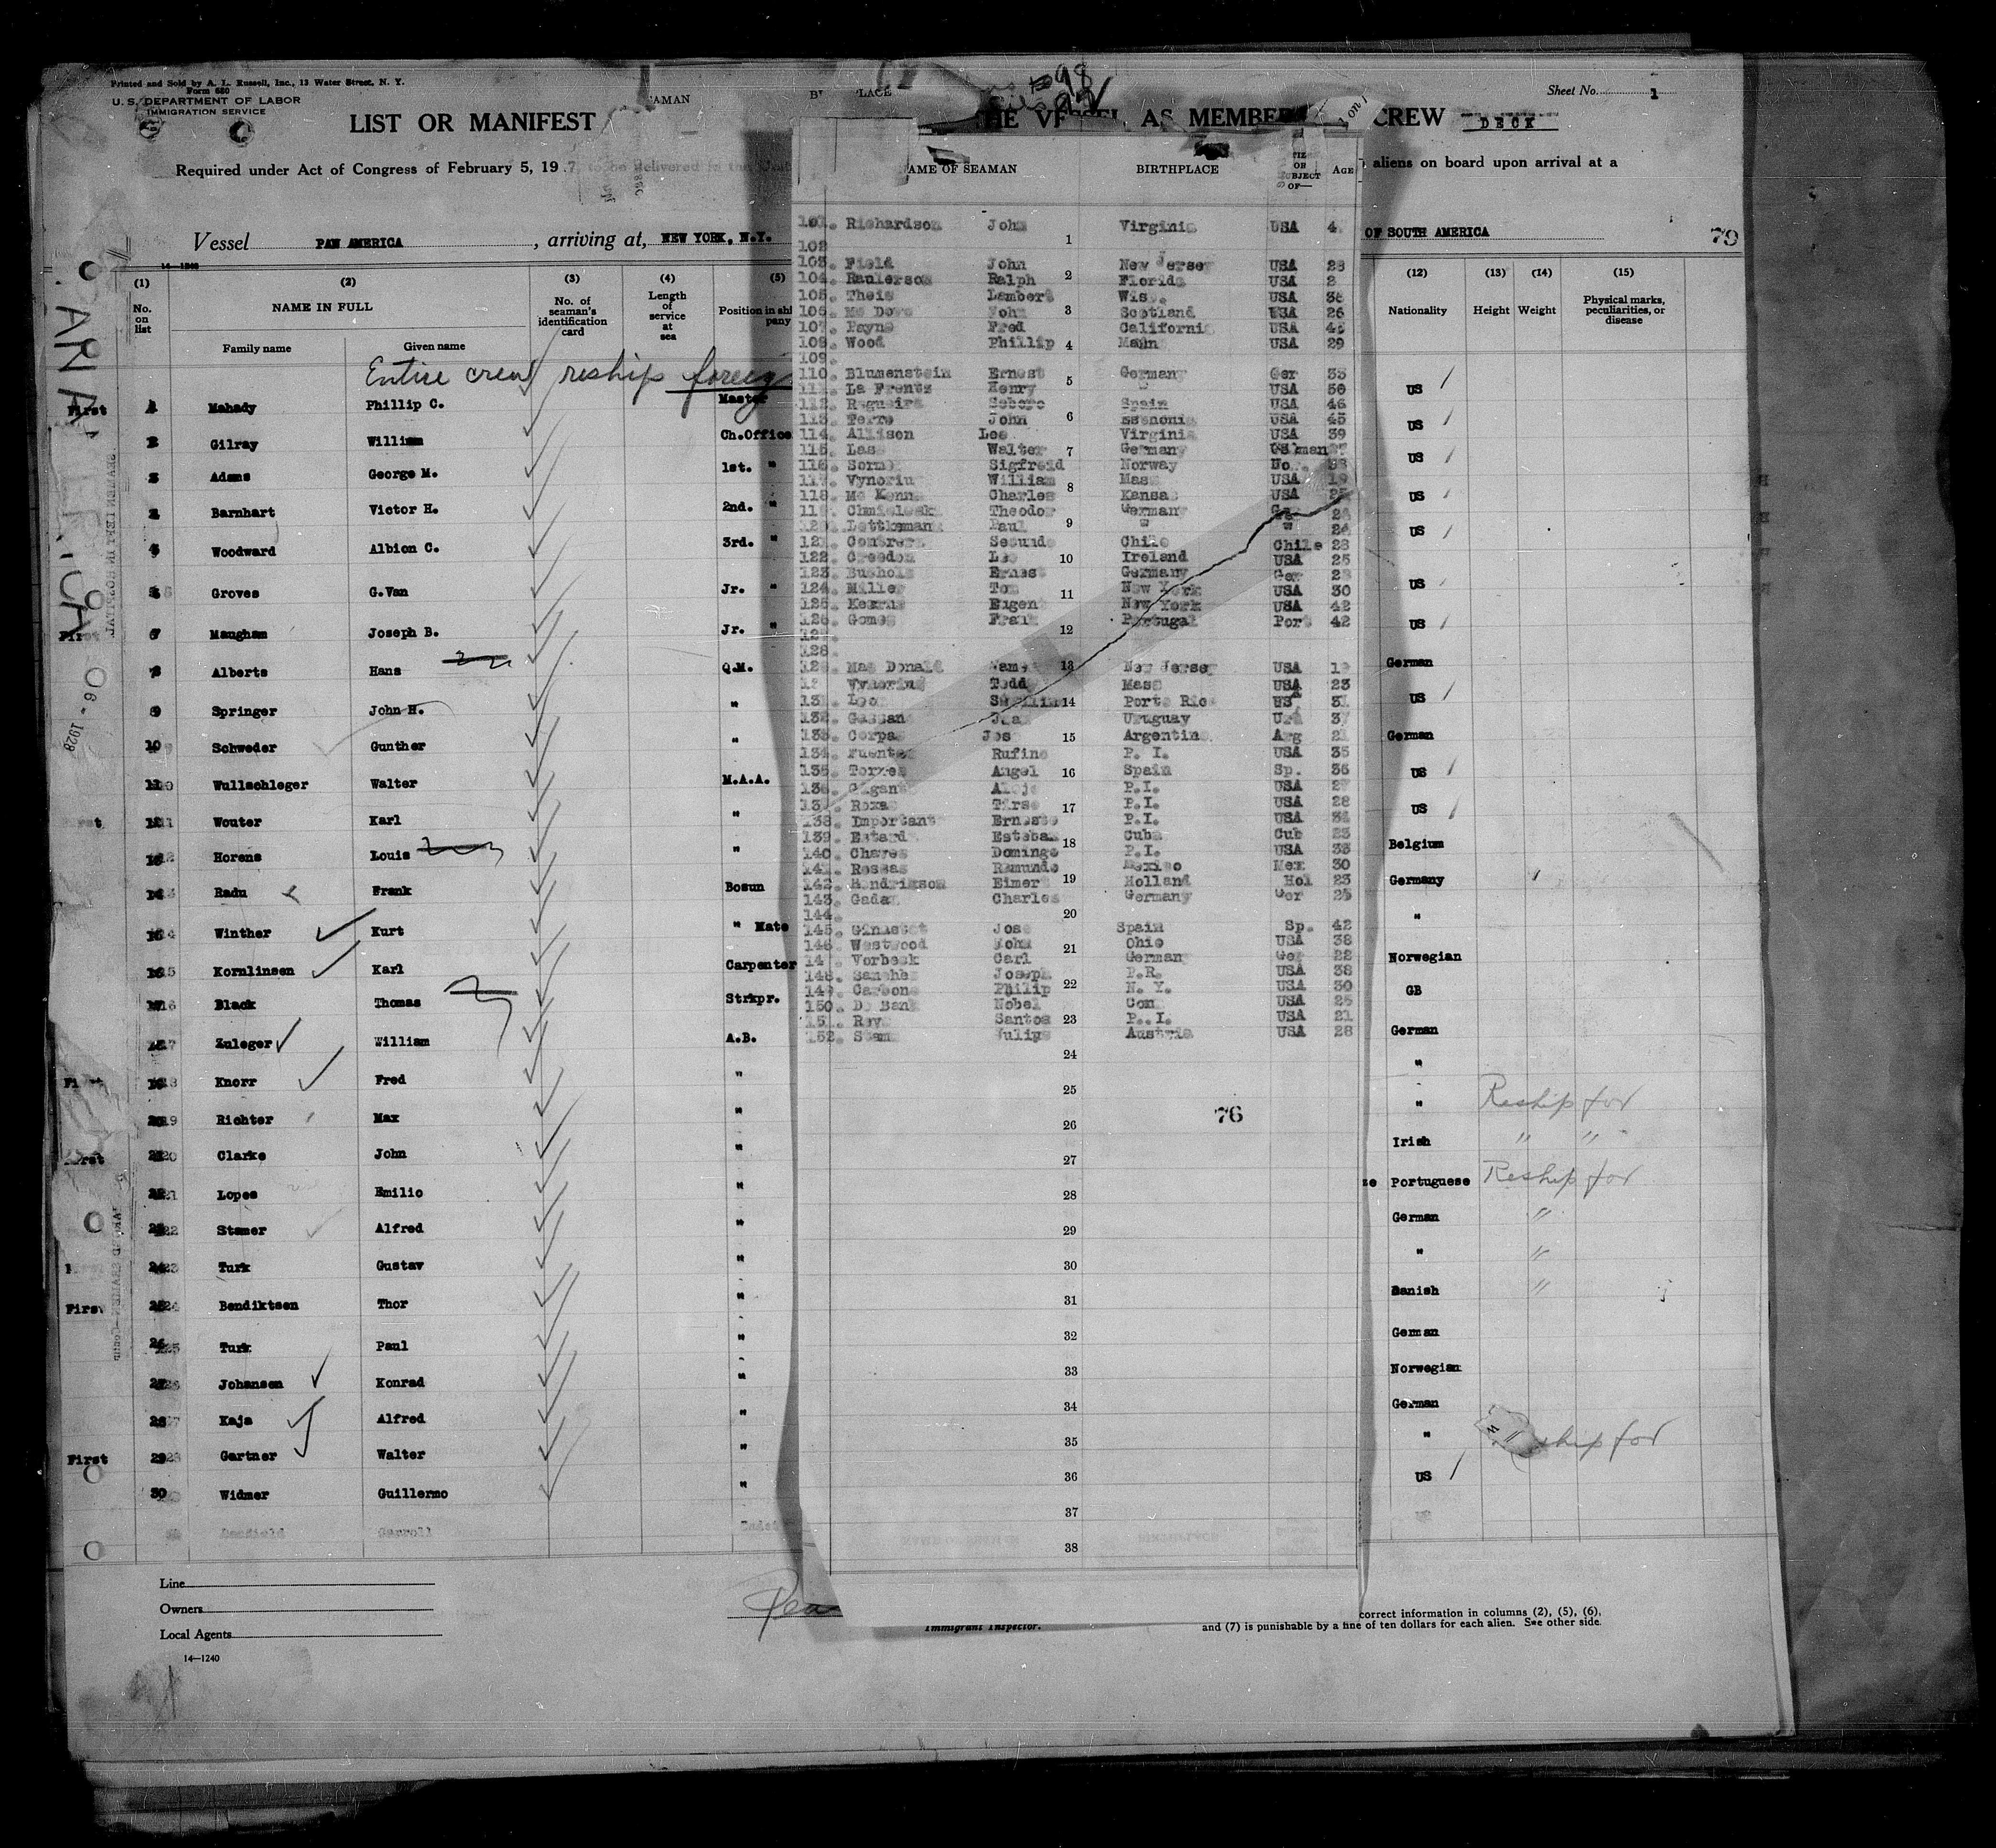 Printed and Sold by A. L. Russell, Inc., 13 Water Street, N. Y.
Form 680
U. S. DEPARTMENT OF LABOR
IMMIGRATION SERVICE
Sheet No. 1
LIST OR MANIFEST
THE VESSEL AS MEMBER CREW DECK
Required under Act of Congress of February 5, 19 7, to be delivered to the aliens on board upon arrival at a
Vessel PAN AMERICA, arriving at, NEW YORK, N.Y. OF SOUTH AMERICA 79
14—1240
(1) (2) (3) (4) (5) (12) (13) (14) (15)
No. on list NAME IN FULL No. of seaman's identification card Length of service at sea Position in shi pany Nationality Height Weight Physical marks, peculiarities, or disease
Family name Given name
Entire crew reship foreig
First 1 Mahady Phillip C. Master US
2 Gilray William Ch.Office US
3 Adams George M. 1st. " US
Barnhart Victor H. 2nd. " US
Woodward Albion C. 3rd. " US
Groves G.Van Jr. " US
First Maugham Joseph B. Jr. " US
Alberts Hans Q.M. German
9 Springer John H. " US
10 Schweder Gunther " German
11 Wullschleger Walter M.A.A. US
Wouter Karl " US
Horens Louis " Belgium
Radu Frank Bosun Germany
Winther Kurt " Mate "
Kornlinsen Karl Carpenter Norwegian
Black Thomas Strkpr. GB
Zuleger William A.B. German
Knorr Fred " "
Richter Max " " Reship for
Clarke John " Irish " "
Lopes Emilio " Portuguese Reship for
Stamer Alfred " German "
Turk Gustav " " "
First Bendiktsen Thor " Danish "
26 Turk Paul " German
27 Johansen Konrad " Norwegian
28 Kaja Alfred " German
First 29 Gartner Walter " " ship for
30 Widmer Guillermo " US
Carroll
NAME OF SEAMAN BIRTHPLACE AGE
101. Richardson John Virginia USA
102
103. Field John New Jersey USA 28
104. Ralph Florida USA
105. Theis Lambert Wis. USA 36
106. John Scotland USA 26
107. Payne Fred California USA
108. Wood Phillip USA 29
109.
110. Blumenstein Ernest Germany Ger 33
111. La Frentz Henry " USA 50
112. Spain USA 46
113. John USA 45
114. Allison Lee Virginia USA 39
115. Walter Germany
116. Sigfreid Norway No.
117. William Mass USA 19
118. Charles Kansas USA 25
119. Theodor Germany
120. Paul " " 26
121. Chile Chile 28
122. Creedon Leo Ireland USA 25
123. Ernest Germany Ger
124. Miller Tom New York USA 30
125. Eugen New York USA 42
126. Gomes Frank Portugal Port 42
127.
128.
129. Mac Donald James New Jersey USA
Todd Mass USA 23
131. Porto Rico US 31
132. Juan Uruguay 37
133. Argentina Arg 21
134. Fuentes Rufino P. I. USA 35
135. Torres Angel Spain Sp. 36
136. P.I. USA
137. Roxas Tirso P.I. USA 28
138. Important Ernesto P.I. USA 34
139. Esteban Cuba Cub 23
140. Chaves Domingo P.I. USA 33
141. Ramundo Mexico Mex 30
142. Hendrikson Eimer Holland Hol 23
143. Charles Germany Ger 25
144.
145. Jose Spain Sp. 42
146. Westwood John Ohio USA 38
14 Vorbeck Carl Germany Ger 22
148. Sanchez Joseph P.R. USA 38
149. Carbone Philip N. Y. USA 30
150. Nobel Con USA 25
151. Reys Santos P. I. USA 21
152. Julius Austria USA 28
76
1
2
3
4
5
6
7
8
9
10
11
12
13
14
15
16
17
18
19
20
21
22
23
24
25
26
27
28
29
30
31
32
33
34
35
36
37
38
Line
Owners
Local Agents
14—1240
Immigrant Inspector.
correct information in columns (2), (5), (6),
and (7) is punishable by a fine of ten dollars for each alien. See other side.